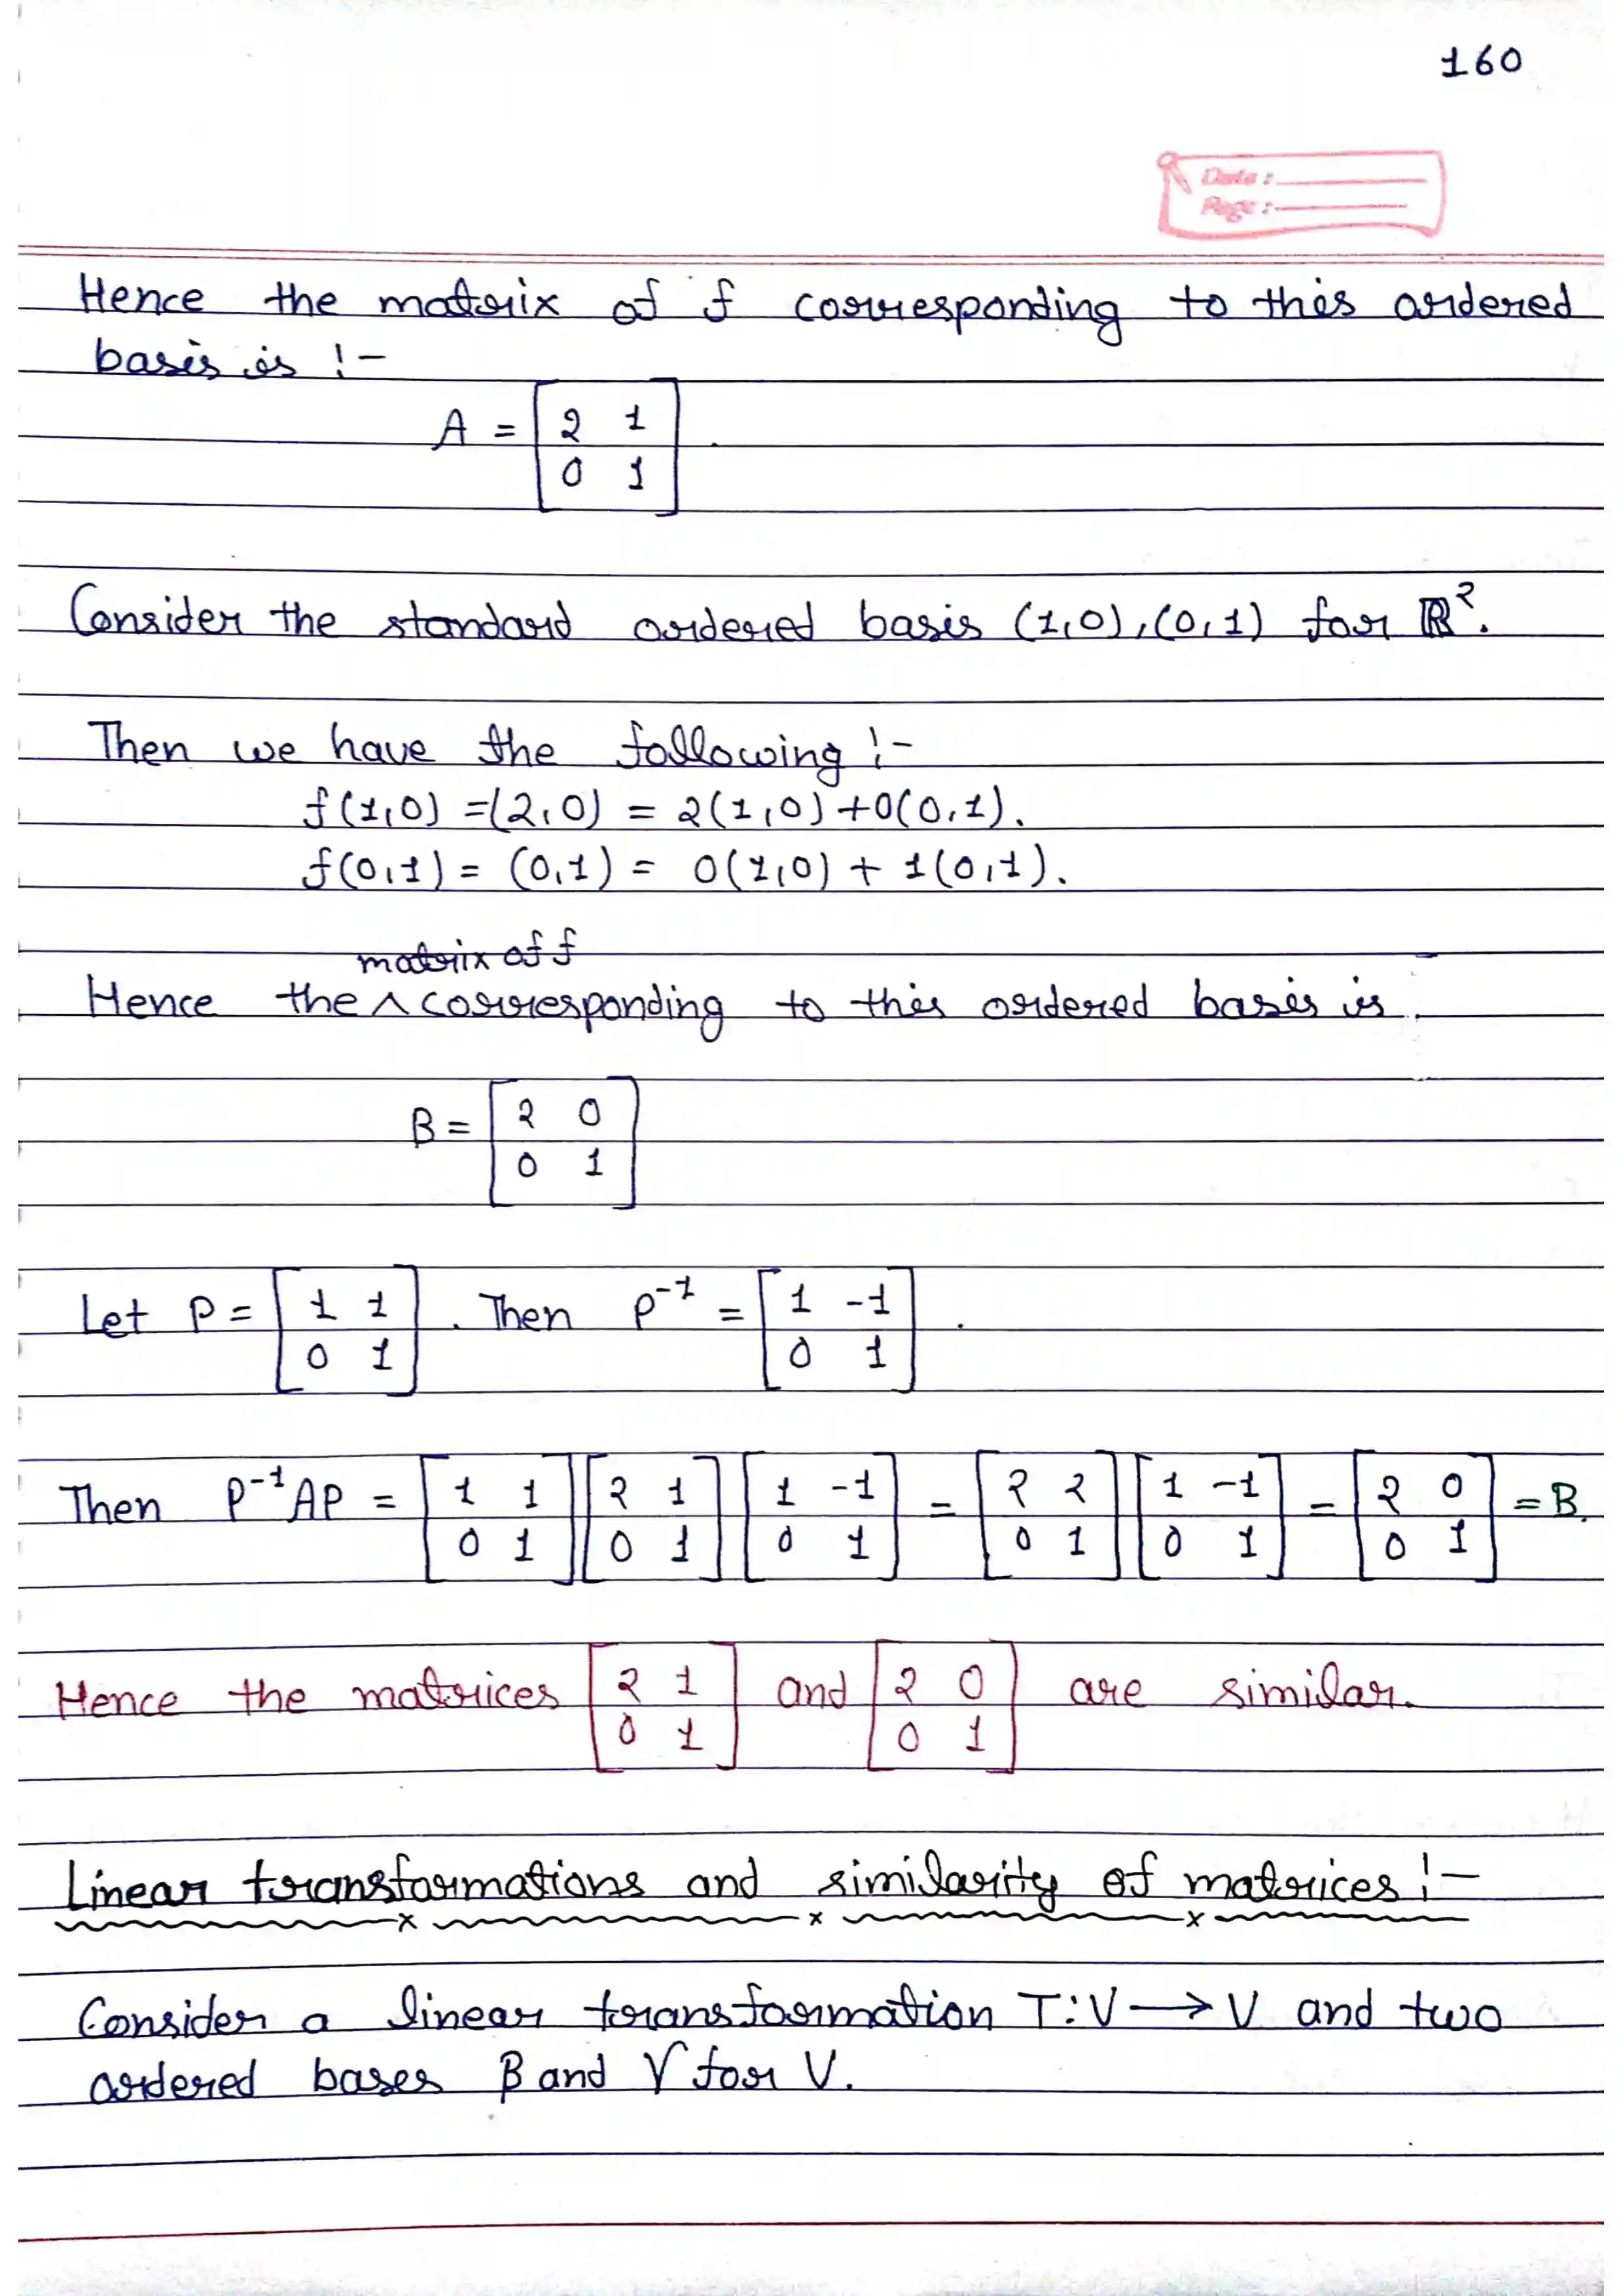 160
Date :
Page :
Hence the matrix of f corresponding to this ordered
basis is :-
A = [2 1
0 1].
Consider the standard ordered basis (1,0),(0,1) for ℝ².
Then we have the following :-
f(1,0) =(2,0) = 2(1,0)+0(0,1).
f(0,1) = (0,1) = 0(1,0) + 1(0,1).
matrix of f
Hence the ^ corresponding to this ordered basis is
B = [2 0
0 1]
Let P = [1 1
0 1]. Then P⁻¹ = [1 -1
0 1].
Then P⁻¹AP = [1 1
0 1] [2 1
0 1] [1 -1
0 1] = [2 2
0 1] [1 -1
0 1] = [2 0
0 1] = B.
Hence the matrices [2 1
0 1] and [2 0
0 1] are similar.
Linear transformations and similarity of matrices :-
Consider a linear transformation T:V→V and two
ordered bases β and γ for V.